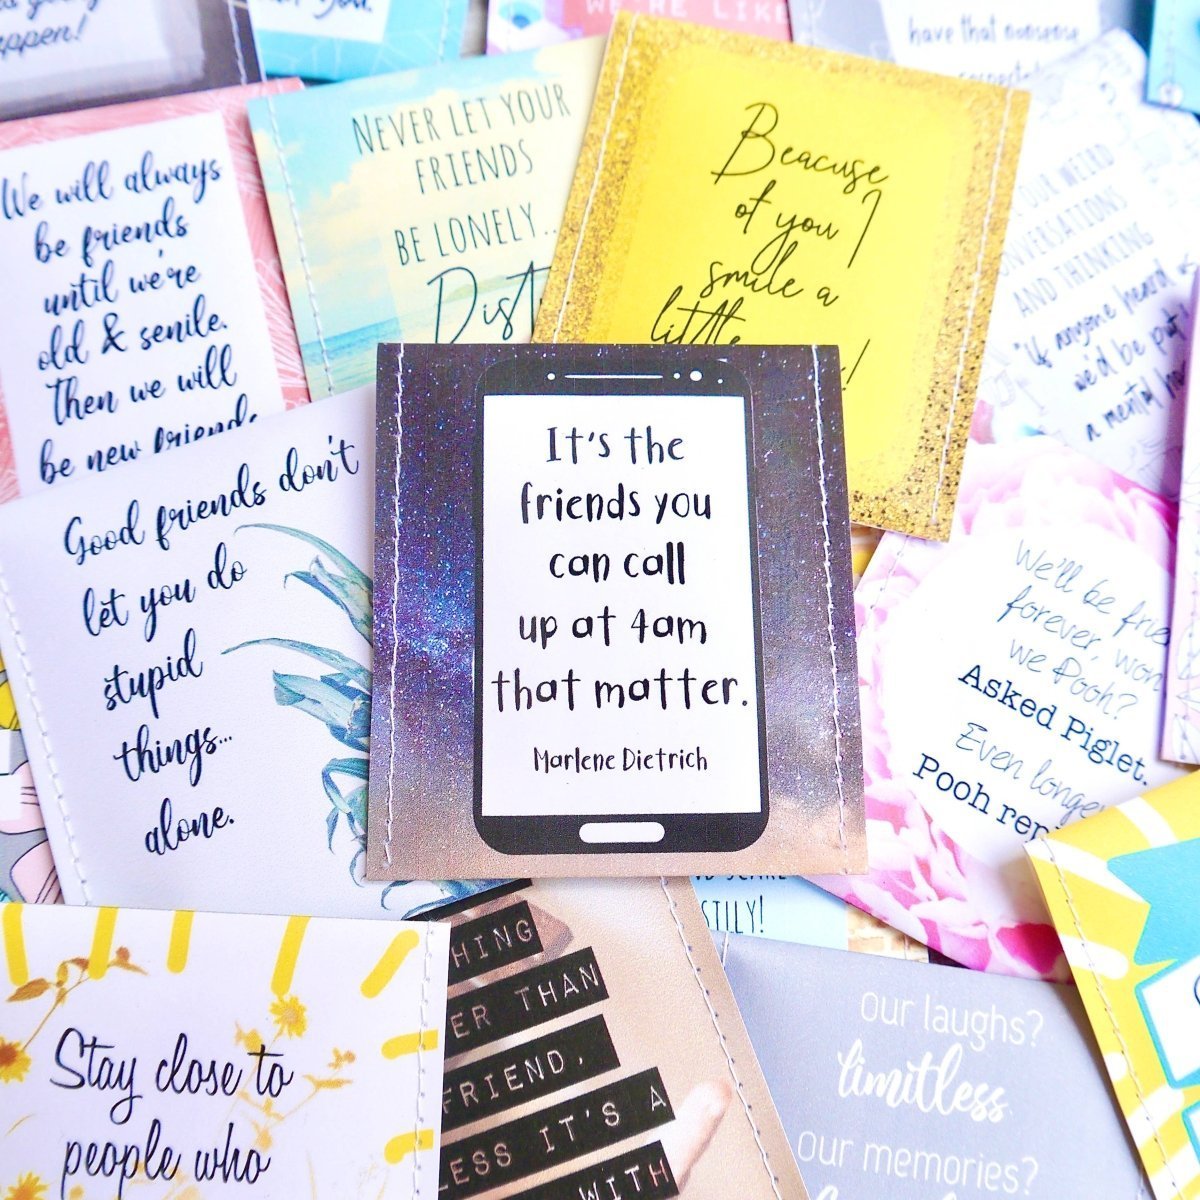 appen!
WE'RE LIKE
have that nonsense
We will always
be friends
until we're
old & senile.
Then we will
be new friends
NEVER LET YOUR
FRIENDS
BE LONELY...
Beacuse
of you I
smile a
little
OUR WEIRD
AND THINKING
"if anyone heard
we'd be put
a mental
Good friends don't
let you do
stupid
things...
alone.
It's the
friends you
can call
up at 4am
that matter.
Marlene Dietrich
We'll be
forever, won
we Pooh?
Asked Piglet.
Even longer
Pooh
Stay close to
people who
HING
ER THAN
FRIEND,
LESS IT'S A
WITH
STILY!
our laughs?
limitless
our memories?